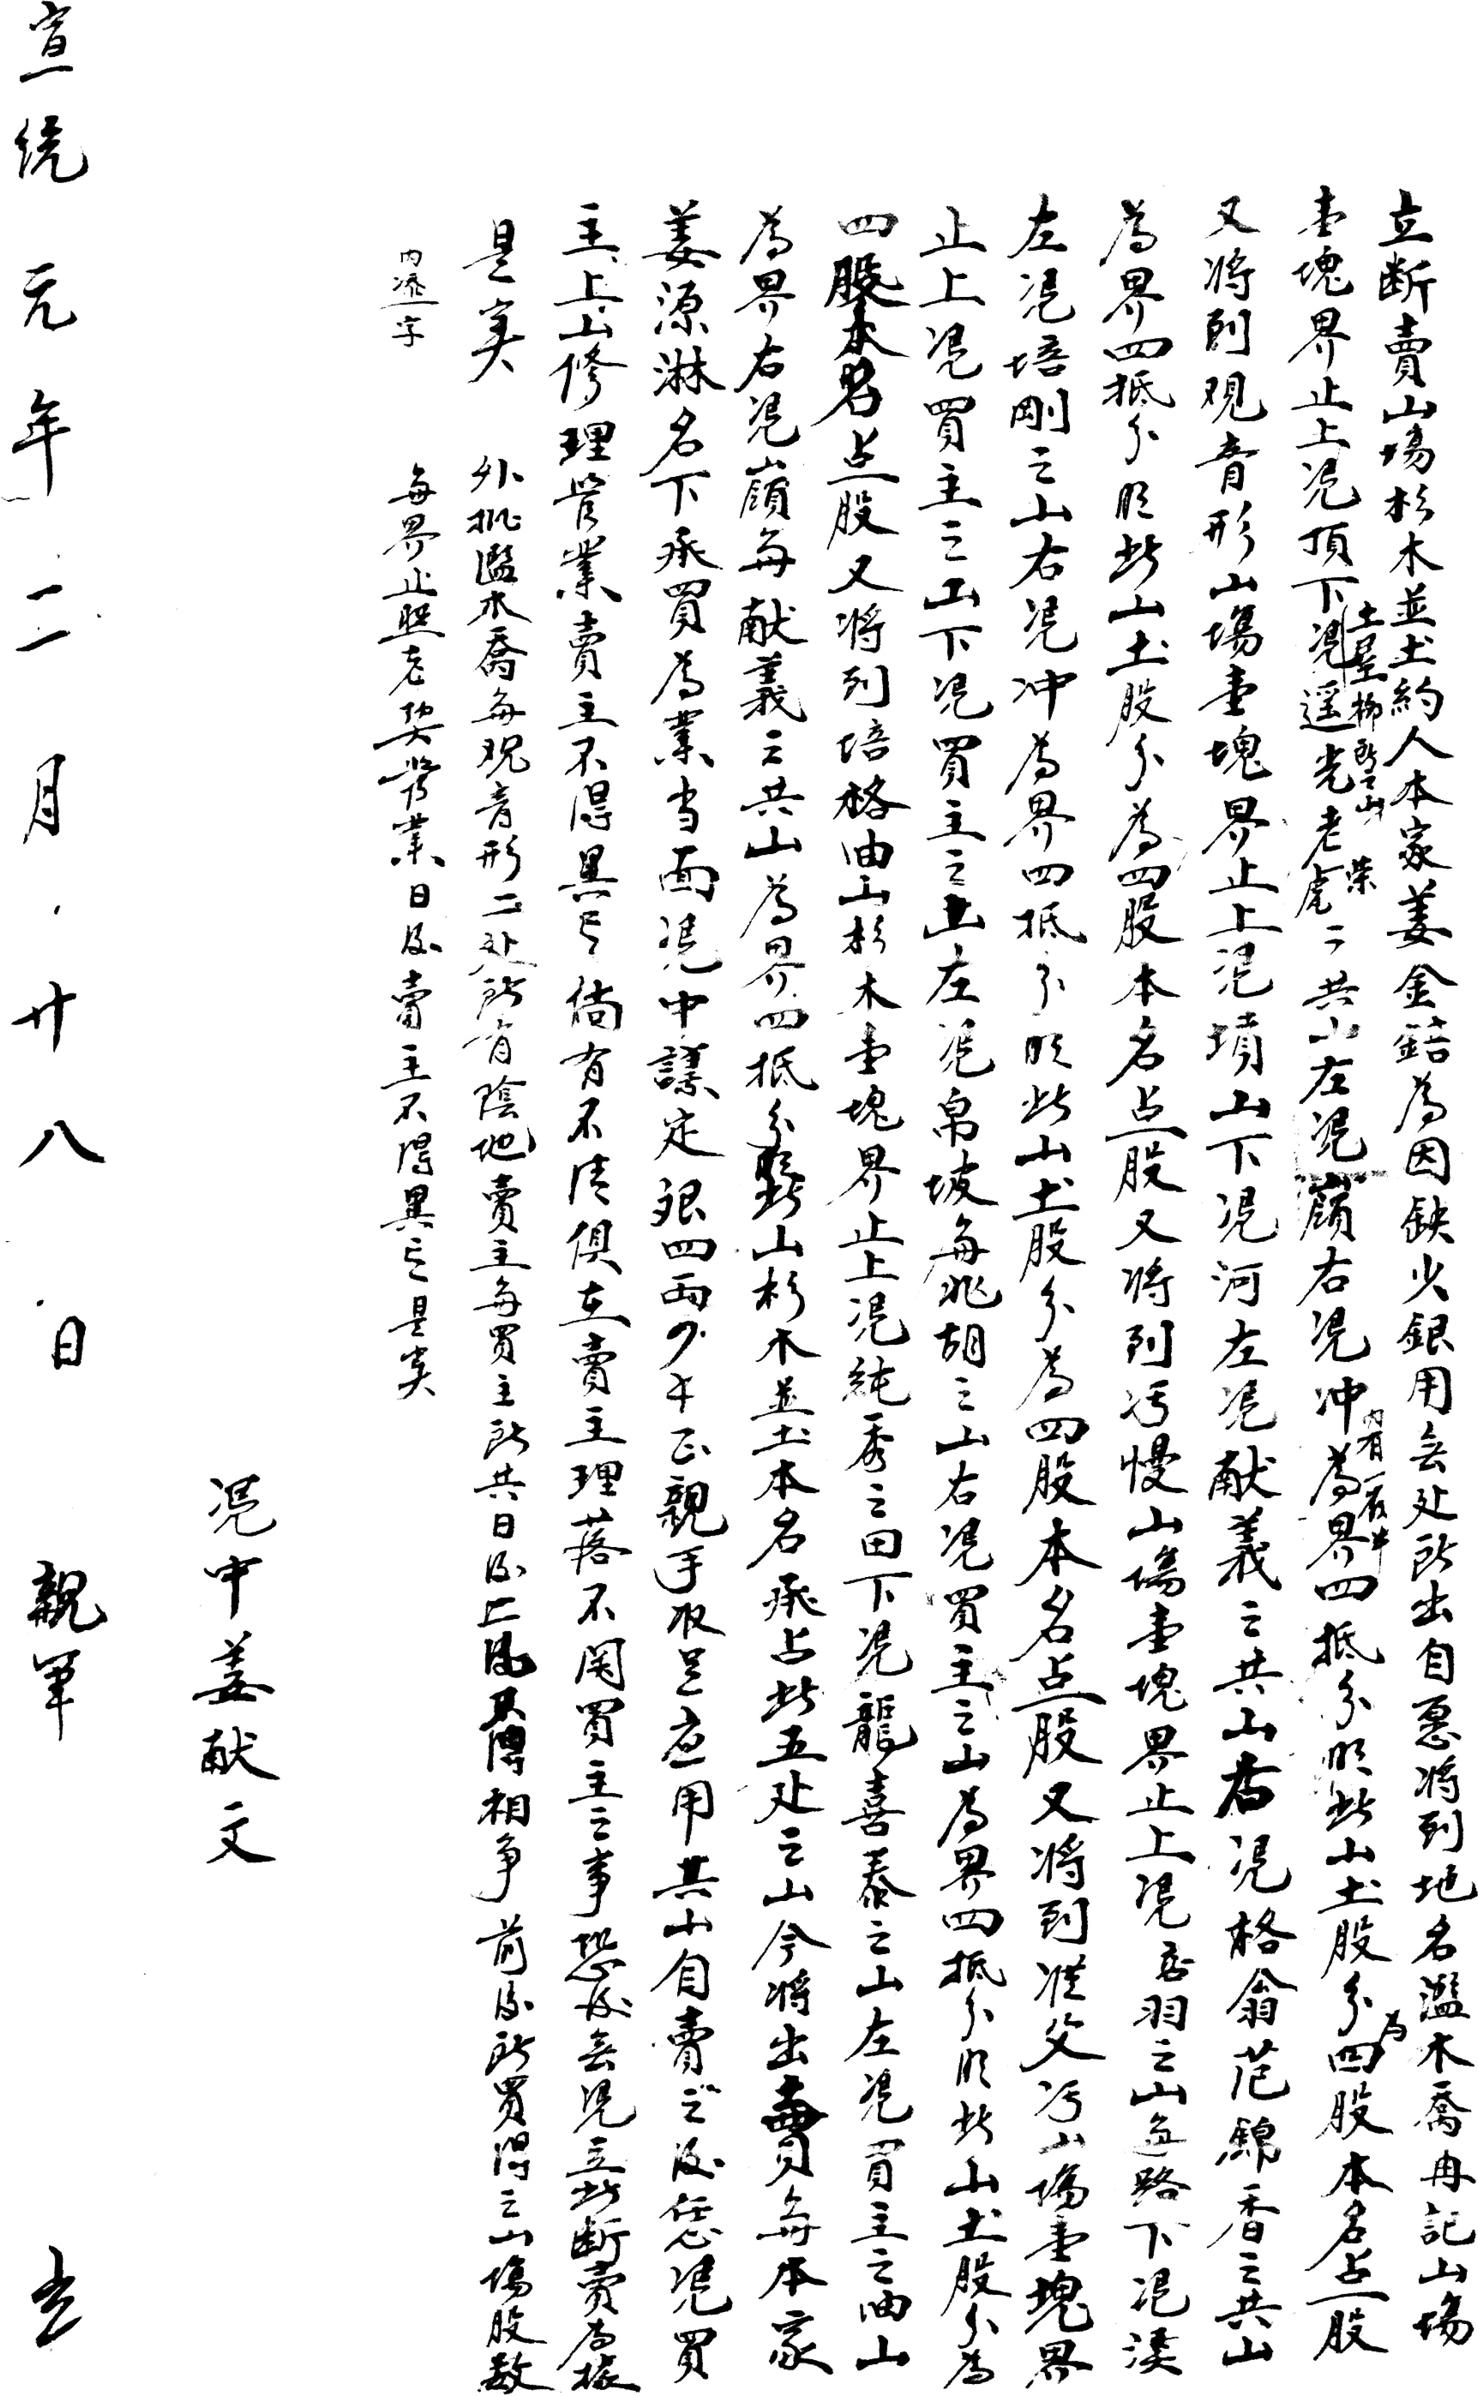 立断賣山場杉木並土約人本家姜金鋯為因缺少銀用無処所出自愿将到地名濫木喬冉記山場
土星柳政之山 荣
壹塊界止上凴頂下凴遥光老虎二共山左凴嶺右凴冲為界四抵分明此山土股分為四股本名占一股
又将到观音形山場壹塊界止上凴墳山下凴河左凴献義之共山右凴格翁范錦香之共山
為界四抵分明此山土股分為四股本名占一股又将到污慢山場壹塊界止上凴之山並路下凴溪
左凴培剛之山右凴冲為界四抵分明此山土股分為四股本名占一股又将到污山場壹塊界
止上凴買主之山下凴買主之土左凴坡每兆胡之山右凴買主之山為界四抵分明此山土股分為
四股本名占一股又将到培格油山杉木壹塊界止上凴純秀之田下凴龍喜泰之山左凴買主之油山
為界右凴嶺每献義之共山為界四抵分明此山杉木並土本名承占此五处之山今将出賣每本家
姜源淋名下承買為業当面凴中議定銀四両正親手收足应用其山自賣之後任凴買
主上山修理管業賣主不得異言倘有不清俱在賣主理落不関買主之事恐後無凴立此断賣為據
是实
外批濫木喬每观音形二处所有陰地賣主每買主所共日後相争前後所買得之山場股数
每界止照老契管業日後賣主不得異言是实
内添一字
凴中姜献文
宣統元年二月廿八日 親筆 立